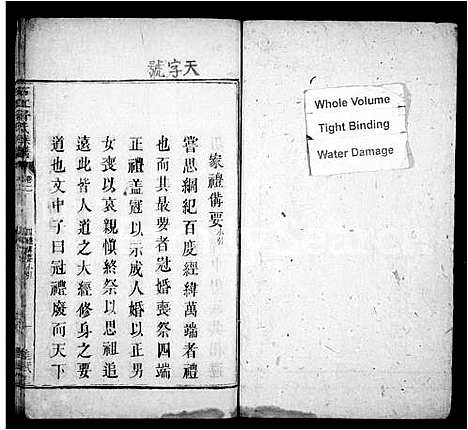 天字號
家禮備要小引
嘗思綱紀百度經緯萬端者禮
也而其最要者冠婚喪祭四端
正禮蓋冠以示成人婚以正男
女喪以哀親慎終祭以思祖追
遠此皆人道之大經修身之要
道也文中子曰冠禮廢而天下
Whole Volume
Tight Binding
Water Damage